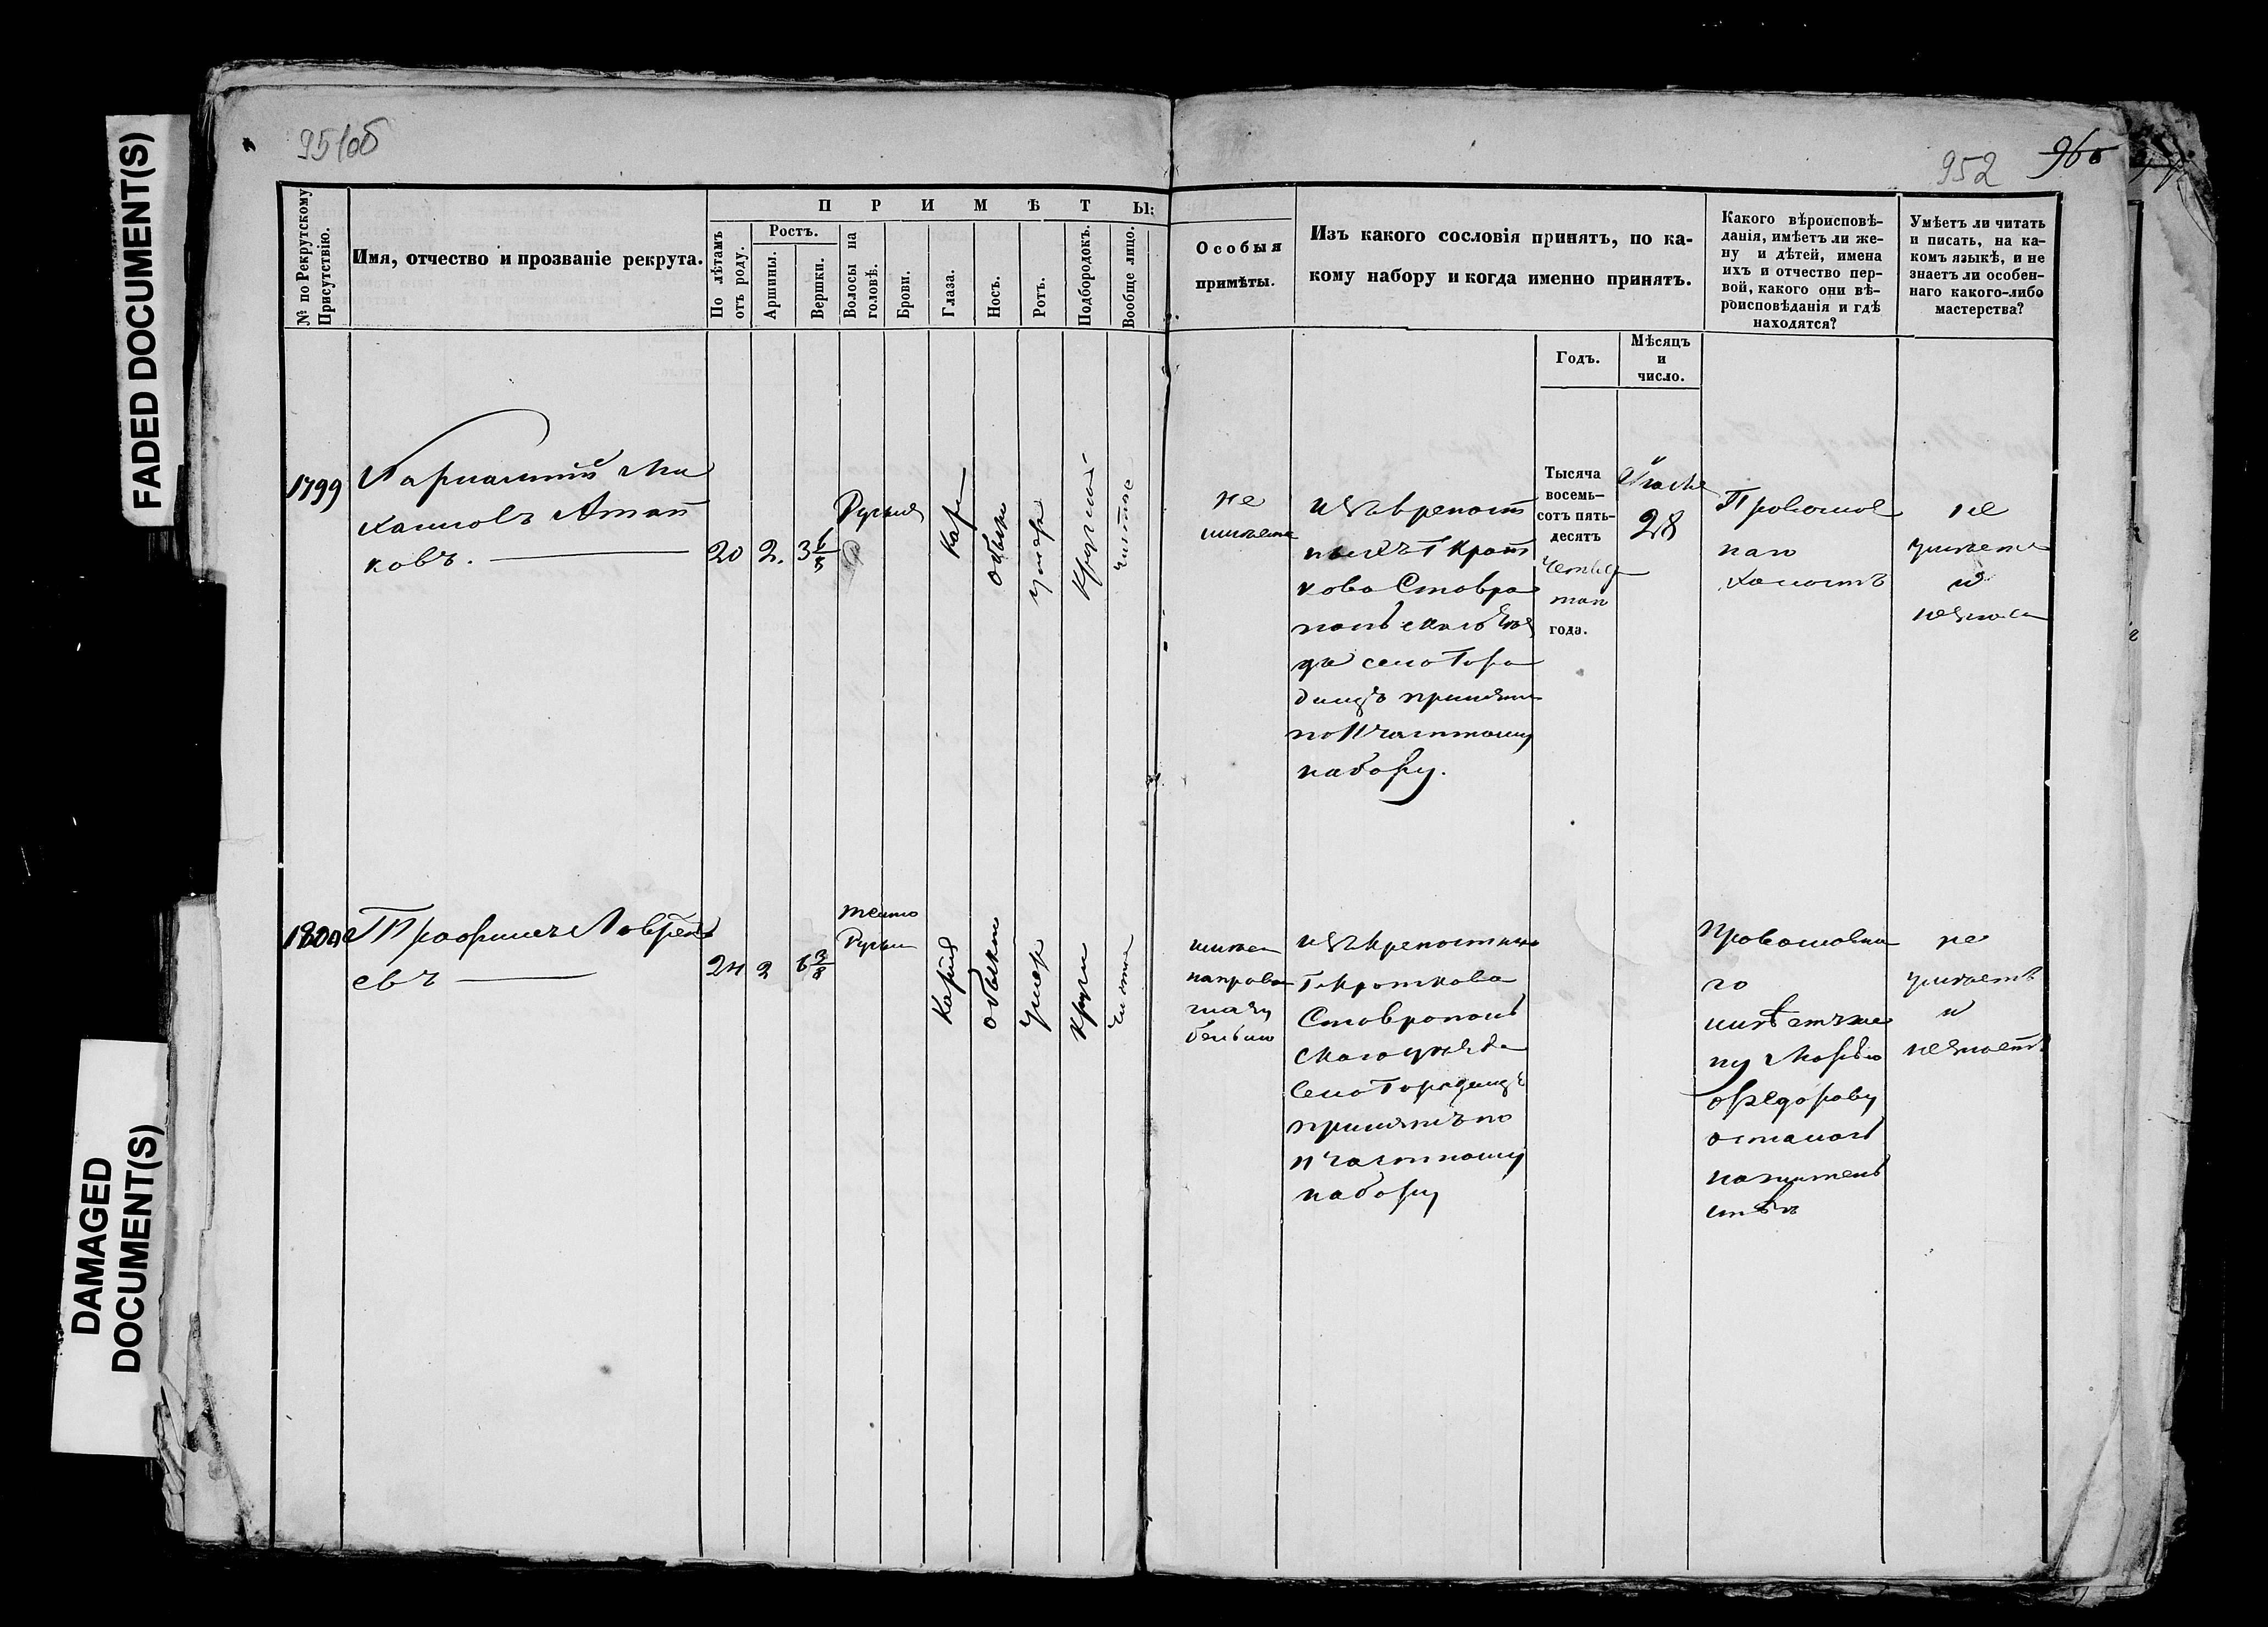 FADED DOCUMENT(S)
DAMAGED
DOCUMENT(S)
951об
952
960
№ по Рекрутскому
Присутствію.
Имя, отчество и прозваніе рекрута.
ПРИМѢТЫ:
По лѣтамъ
отъ роду.
Ростъ.
Аршины.
Вершки.
Волосы на
головѣ.
Брови.
Глаза.
Носъ.
Ротъ.
Подбородокъ.
Вообще лицо.
Особыя
примѣты.
Изъ какого сословія принятъ, по ка-
кому набору и когда именно принятъ.
Годъ.
Мѣсяцъ
и
число.
Какого вѣроисповѣ-
данія, имѣетъ ли же-
ну и дѣтей, имена
ихъ и отчество пер-
вой, какого они вѣ-
роисповѣданія и гдѣ
находятся?
Умѣетъ ли читать
и писать, на ка-
комъ языкѣ, и не
знаетъ ли особен-
наго какого-либо
мастерства?
1799
Ми
хаиловъ
ковъ.
20
2.
3
Русыя
Кар
обыкн
умер
Круглой
чистое
не
имеетъ
изъ крепост
ныхъ Г Крот
кова Ставро
поль скаго уез
да село Горо
дищъ принятъ
по II частному
набору.
Тысяча
восемь-
сотъ пять-
десятъ
четвер
таго
года.
28
Православ
наго
холостъ
не
умеетъ
и
незнаетъ
1800
Трофимъ Лаврен
евъ
24
2
6 3/8
темно
Русыя
Карія
обыкн
умер
кругл
чистое
имеет
на право
глазу
бельмо
изъ крепостныхъ
Г Кроткова
Ставрополь
скаго уезда
село Городищъ
принятъ по
II частному
набору
Православна
го
имѣетъ же
ну Марью
Федорову
осталась
на жительс
не
умеетъ
и
незнаетъ